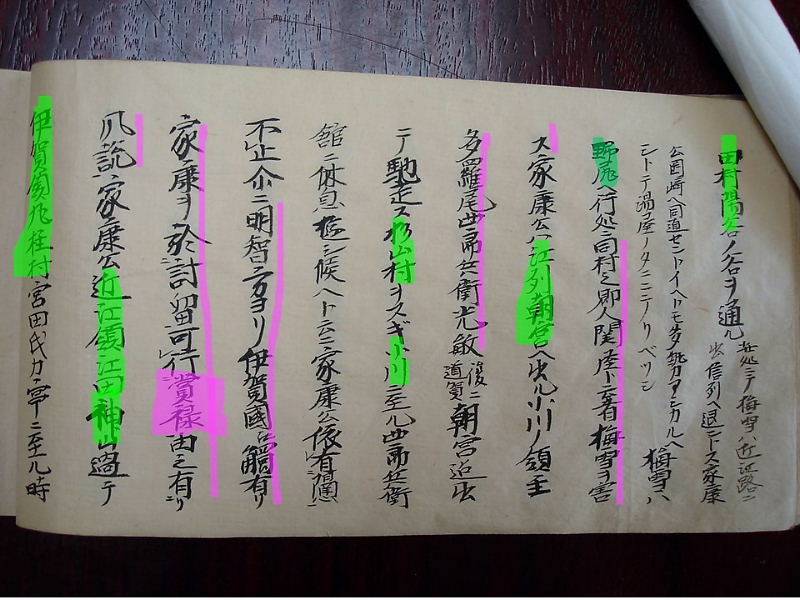 田村陽谷ノ谷ヲ通ル 此処ニテ梅雪ハ近江路ニ
出信列ヘ退ントス家康
公岡崎ヘ直セントイヘトモ
シトテ湯屋ノタニニニノリベツシ 梅雪ハ
野尻ヘ行処ニ同村之郎人関 座ト云者梅雪ヲ害
ス家康公ハ江列朝宮ヘ出ル小川ノ領主
多羅尾四郎兵衛光敏 後ニ道賀 朝宮迄出
テ馳走ス杉山村ヲスギ小川ニ至ル四郎兵衛
館ニ休息 シ候ヘト云ニ家康公依有御
不止 ニ明智方ヨリ伊賀國ニ觸有リ
家康ヲ於討留可行 禄由之有リ
風説家康公近江領江田神山過テ
伊賀領丸柱村宮田氏カ ニ至ル時